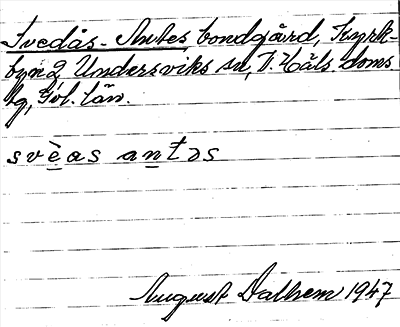 Svedås-Antes, bondgård, Kyrk-
byn 2, Undersviks sn, V. Häls. doms
lg, Gvl. län.
svèas antəs
August Dalhem 1947